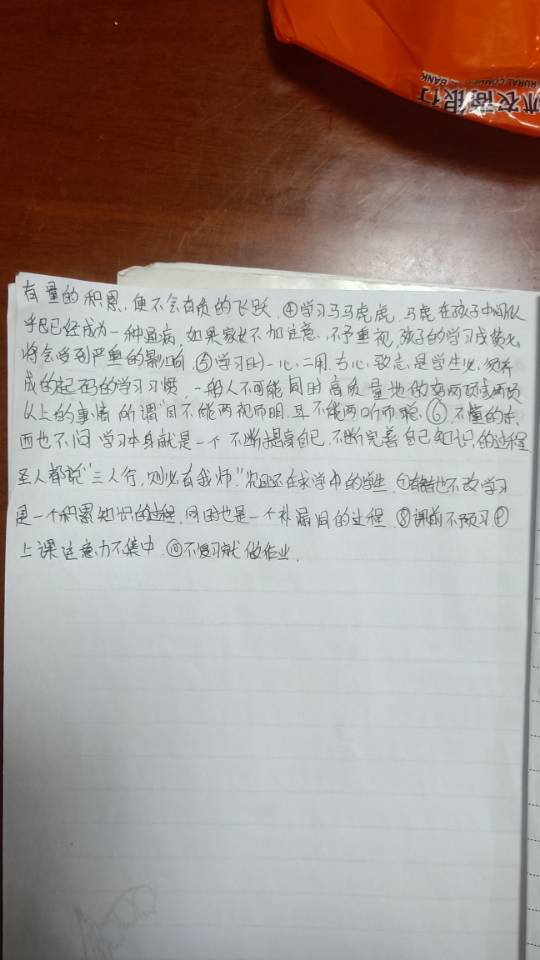 RURAL COM
BANK
农商银行
有量的积累,便不会有质的飞跃.④学习马马虎虎.马虎在孩子中间似
乎已经成为一种通病,如果家长不加注意,不予重视,孩子的学习成绩
将会受到严重的影响.⑤学习时一心二用.专心致志,是学生必须养
成的起码的学习习惯,一般人不可能同时高质量地做两项或两项
以上的事情,所谓"目不能两视而明,耳不能两听而聪.⑥.不懂的东
西也不问 学习本身就是一个不断提高自己,不断完善自己知识的过程
圣人都说"三人行,则必有我师."况还在求学中的学生.⑦有错也不改学习
是一个积累知识的过程,同时也是一个补漏洞的过程.⑧课前不预习⑨
上课注意力不集中.⑩不复习就做作业.